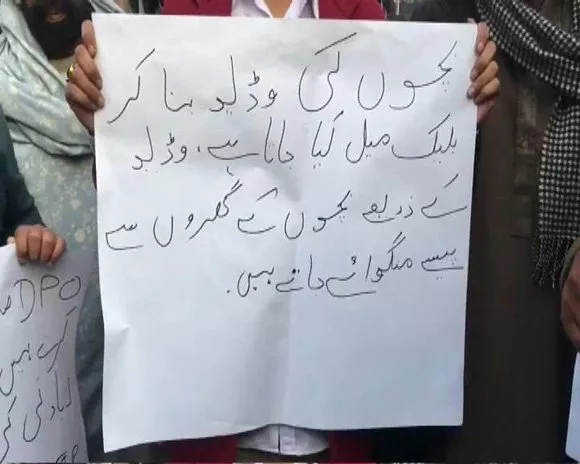 بچوں کی وڈیو بنا کر
بلیک میل کیا جاتا ہے، وڈیو
کے ذریعے بچوں کے گھروں سے
پیسے منگوائے جاتے ہیں۔
DPO
کرتے ہیں